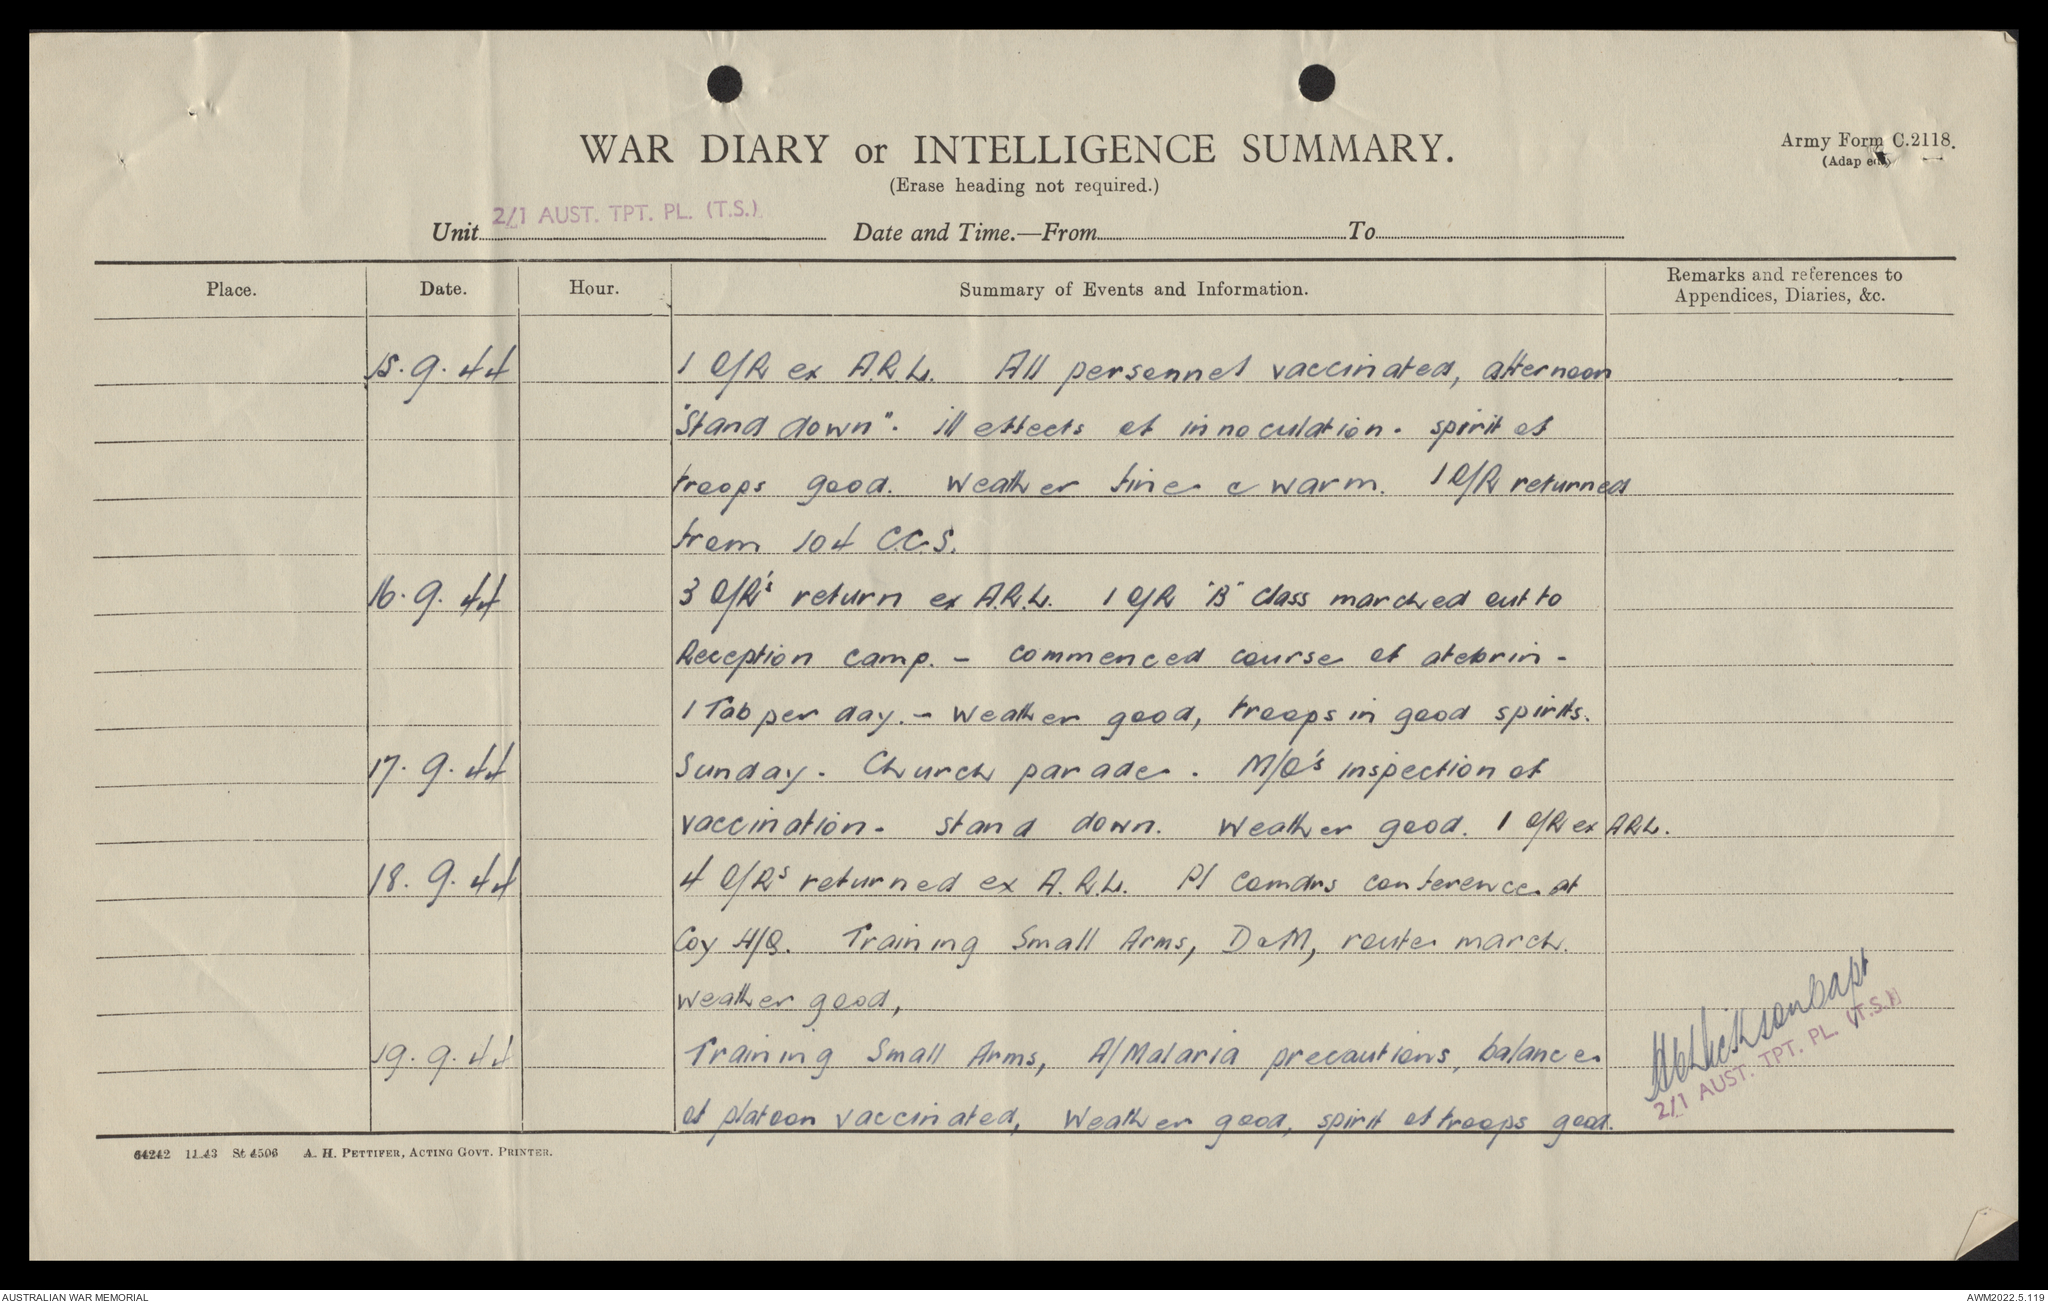 WAR DIARY or INTELLIGENCE SUMMARY.
Army Form C.2118.
(Erase heading not required.)
2/1 AUST. TPT. PL. (T.S.)
Unit Date and Time.—From To
Place. Date. Hour. Summary of Events and Information. Remarks and references to
Appendices, Diaries, &c.
15.9.44 1 O/R ex A.R.L. All personnel vaccinated, afternoon
"Stand down". ill effects of innoculation. spirit of
troops good. Weather fine & warm. 1 O/R returned
from 104 C.C.S.
16.9.44 3 O/R's return ex A.R.L. 1 O/R "B" class marched out to
Reception camp. - commenced course of atebrin -
1 Tab per day. - Weather good, troops in good spirits.
17.9.44 Sunday. Church parade. M/O's inspection of
vaccination. stand down. Weather good. 1 O/R ex A.R.L.
18.9.44 4 O/Rs returned ex A.R.L. Pl comdrs conference at
Coy H/Q. Training Small Arms, D&M, route march.
Weather good,
19.9.44 Training Small Arms, A/Malaria precautions, balance
of platoon vaccinated, Weather good, spirit of troops good.
Dickson Capt
2/1 AUST. TPT. PL. (T.S.)
64242 11.43 St 4506 A. H. PETTIFER, ACTING GOVT. PRINTER.
AUSTRALIAN WAR MEMORIAL AWM2022.5.119